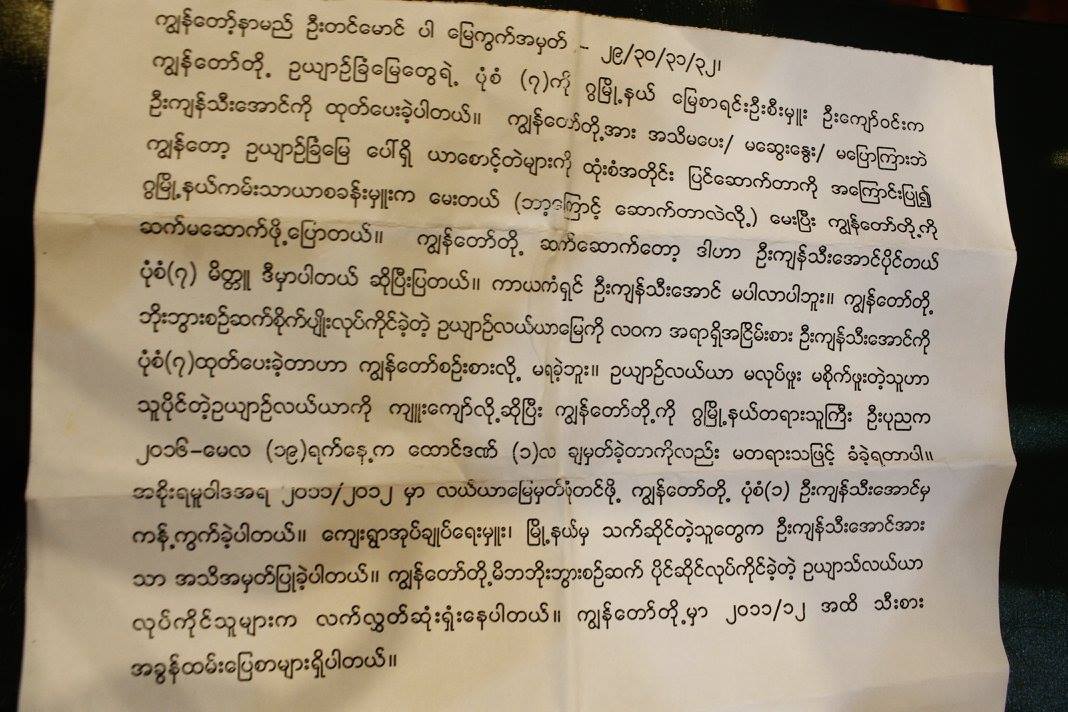 ကျွန်တော့်နာမည် ဦးတင်မောင် ပါ မြေကွက်အမှတ် - ၂၉/၃၀/၃၁/၃၂၊
ကျွန်တော်တို့ ဥယျာဉ်ခြံမြေတွေရဲ့ ပုံစံ (၇)ကို ဂွမြို့နယ် မြေစာရင်းဦးစီးမှူး ဦးကျော်ဝင်းက
ဦးကျန်သီးအောင်ကို ထုတ်ပေးခဲ့ပါတယ်။ ကျွန်တော်တို့အား အသိမပေး/ မဆွေးနွေး/ မပြောကြားဘဲ
ကျွန်တော့ ဥယျာဉ်ခြံမြေ ပေါ်ရှိ ယာစောင့်တဲများကို ထုံးစံအတိုင်း ပြင်ဆောက်တာကို အကြောင်းပြု၍
ဂွမြို့နယ်ကမ်းသာယာစခန်းမှူးက မေးတယ် (ဘာ့ကြောင့် ဆောက်တာလဲလို့) မေးပြီး ကျွန်တော်တို့ကို
ဆက်မဆောက်ဖို့ပြောတယ်။ ကျွန်တော်တို့ ဆက်ဆောက်တော့ ဒါဟာ ဦးကျန်သီးအောင်ပိုင်တယ်
ပုံစံ(၇) မိတ္တူ ဒီမှာပါတယ် ဆိုပြီးပြတယ်။ ကာယကံရှင် ဦးကျန်သီးအောင် မပါလာပါဘူး။ ကျွန်တော်တို့
ဘိုးဘွားစဉ်ဆက်စိုက်ပျိုးလုပ်ကိုင်ခဲ့တဲ့ ဥယျာဉ်လယ်ယာမြေကို လဝက အရာရှိအငြိမ်းစား ဦးကျန်သီးအောင်ကို
ပုံစံ(၇)ထုတ်ပေးခဲ့တာဟာ ကျွန်တော်စဉ်းစားလို့ မရခဲ့ဘူး။ ဥယျာဉ်လယ်ယာ မလုပ်ဖူး မစိုက်ဖူးတဲ့သူဟာ
သူပိုင်တဲ့ဥယျာဉ်လယ်ယာကို ကျူးကျော်လို့ဆိုပြီး ကျွန်တော်တို့ကို ဂွမြို့နယ်တရားသူကြီး ဦးပုညက
၂၀၁၆-မေလ (၁၉)ရက်နေ့က ထောင်ဒဏ် (၁)လ ချမှတ်ခဲ့တာကိုလည်း မတရားသဖြင့် ခံခဲ့ရတာပါ။
အစိုးရမူဝါဒအရ ၂၀၁၁/၂၀၁၂ မှာ လယ်ယာမြေမှတ်ပုံတင်ဖို့ ကျွန်တော်တို့ ပုံစံ(၁) ဦးကျန်သီးအောင်မှ
ကန့်ကွက်ခဲ့ပါတယ်။ ကျေးရွာအုပ်ချုပ်ရေးမှူး၊ မြို့နယ်မှ သက်ဆိုင်တဲ့သူတွေက ဦးကျန်သီးအောင်အား
သာ အသိအမှတ်ပြုခဲ့ပါတယ်။ ကျွန်တော်တို့မိဘဘိုးဘွားစဉ်ဆက် ပိုင်ဆိုင်လုပ်ကိုင်ခဲ့တဲ့ ဥယျာသ်လယ်ယာ
လုပ်ကိုင်သူများက လက်လွှတ်ဆုံးရှုံးနေပါတယ်။ ကျွန်တော်တို့မှာ ၂၀၁၁/၁၂ အထိ သီးစား
အခွန်ထမ်းပြေစာများရှိပါတယ်။